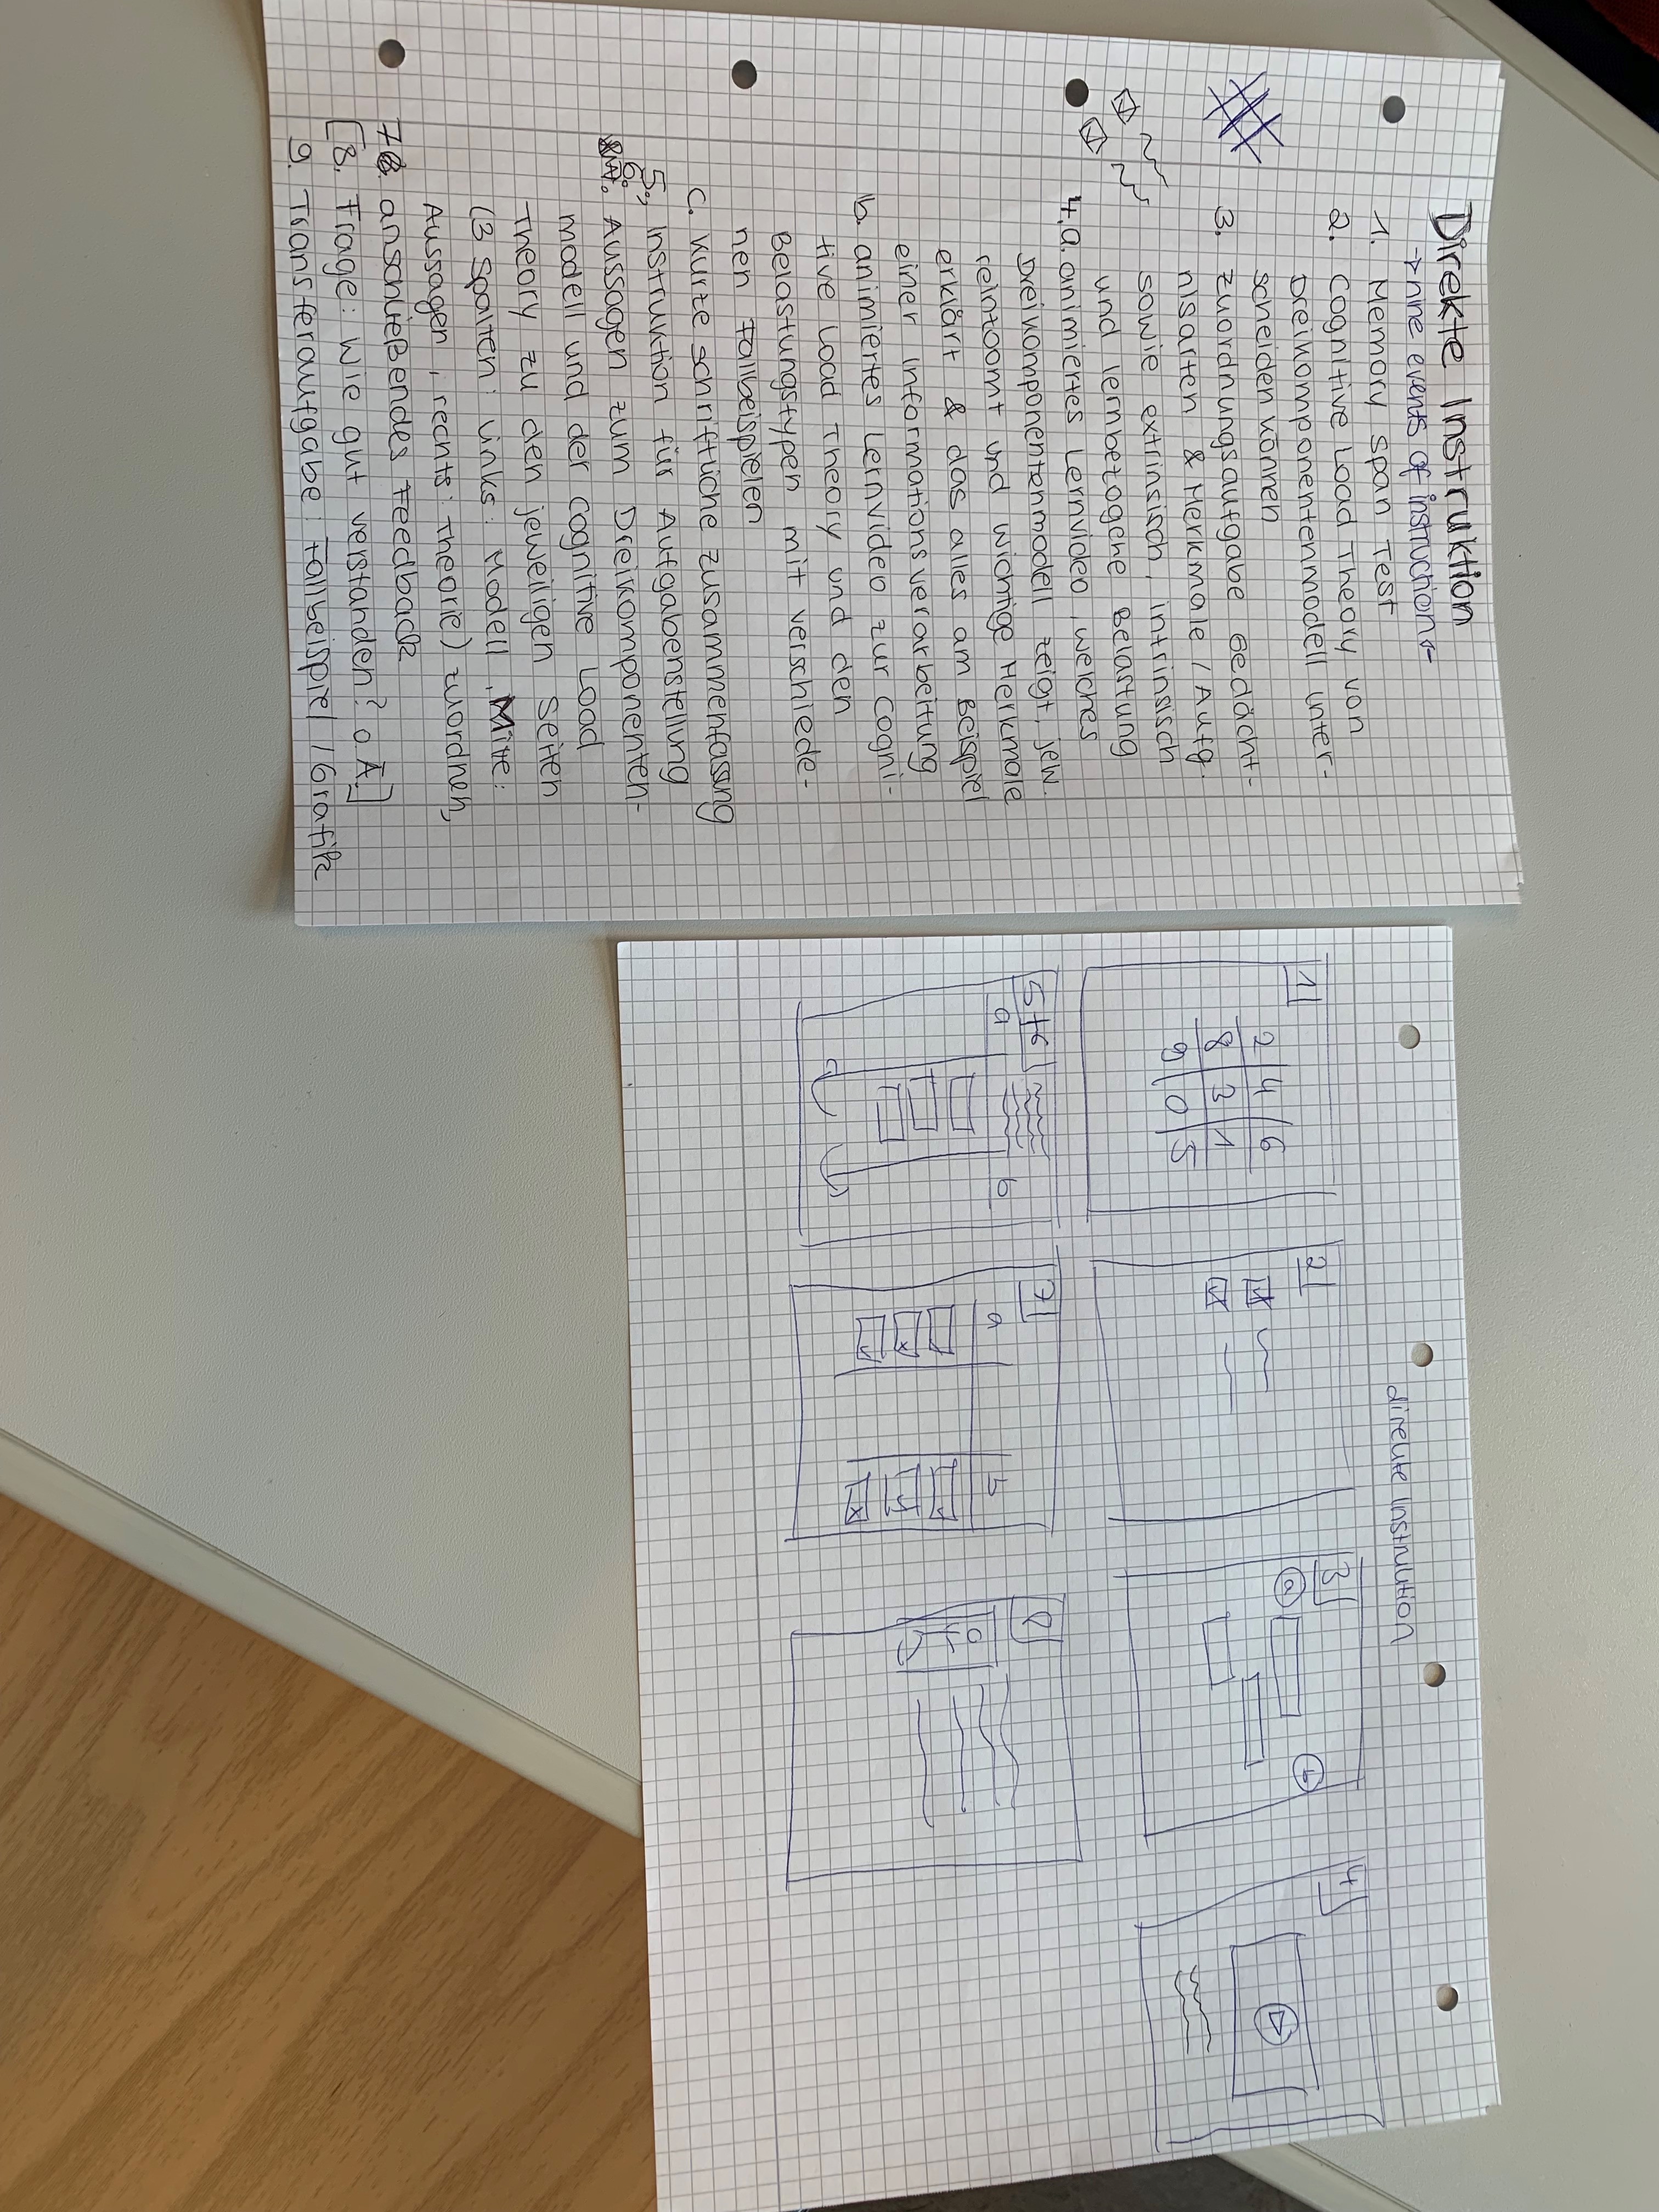 Direkte Instruktion
→ nine events of instruction
1. Memory Span Test
2. Cognitive Load Theory von
Dreikomponentenmodell unter-
scheiden können
3. Zuordnungsaufgabe Gedächt-
nisarten & Merkmale / Aufg.
sowie extrinsisch, intrinsisch
und lernbezogene Belastung
4. a. animiertes Lernvideo, welches
Dreikomponentenmodell zeigt, jew.
reinzoomt und wichtige Merkmale
erklärt & das alles am Beispiel
einer Informationsverarbeitung
b. animiertes Lernvideo zur Cogni-
tive Load Theory und den
Belastungstypen mit verschiede-
nen Fallbeispielen
c. kurze schriftliche Zusammenfassung
5. Instruktion für Aufgabenstellung
6. Aussagen zum Dreikomponenten-
modell und der Cognitive Load
Theory zu den jeweiligen Seiten
(3 Spalten: links: Modell, Mitte:
Aussagen, rechts: Theorie) zuordnen,
7. anschließendes Feedback
[8. Frage: wie gut verstanden? o.Ä.]
9. Transferaufgabe: Fallbeispiel / Grafik
direkte Instruktion
1
2 4 6
8 3 1
9 0 5
2
3
a
b
4
5+6
a
b
7
a
b